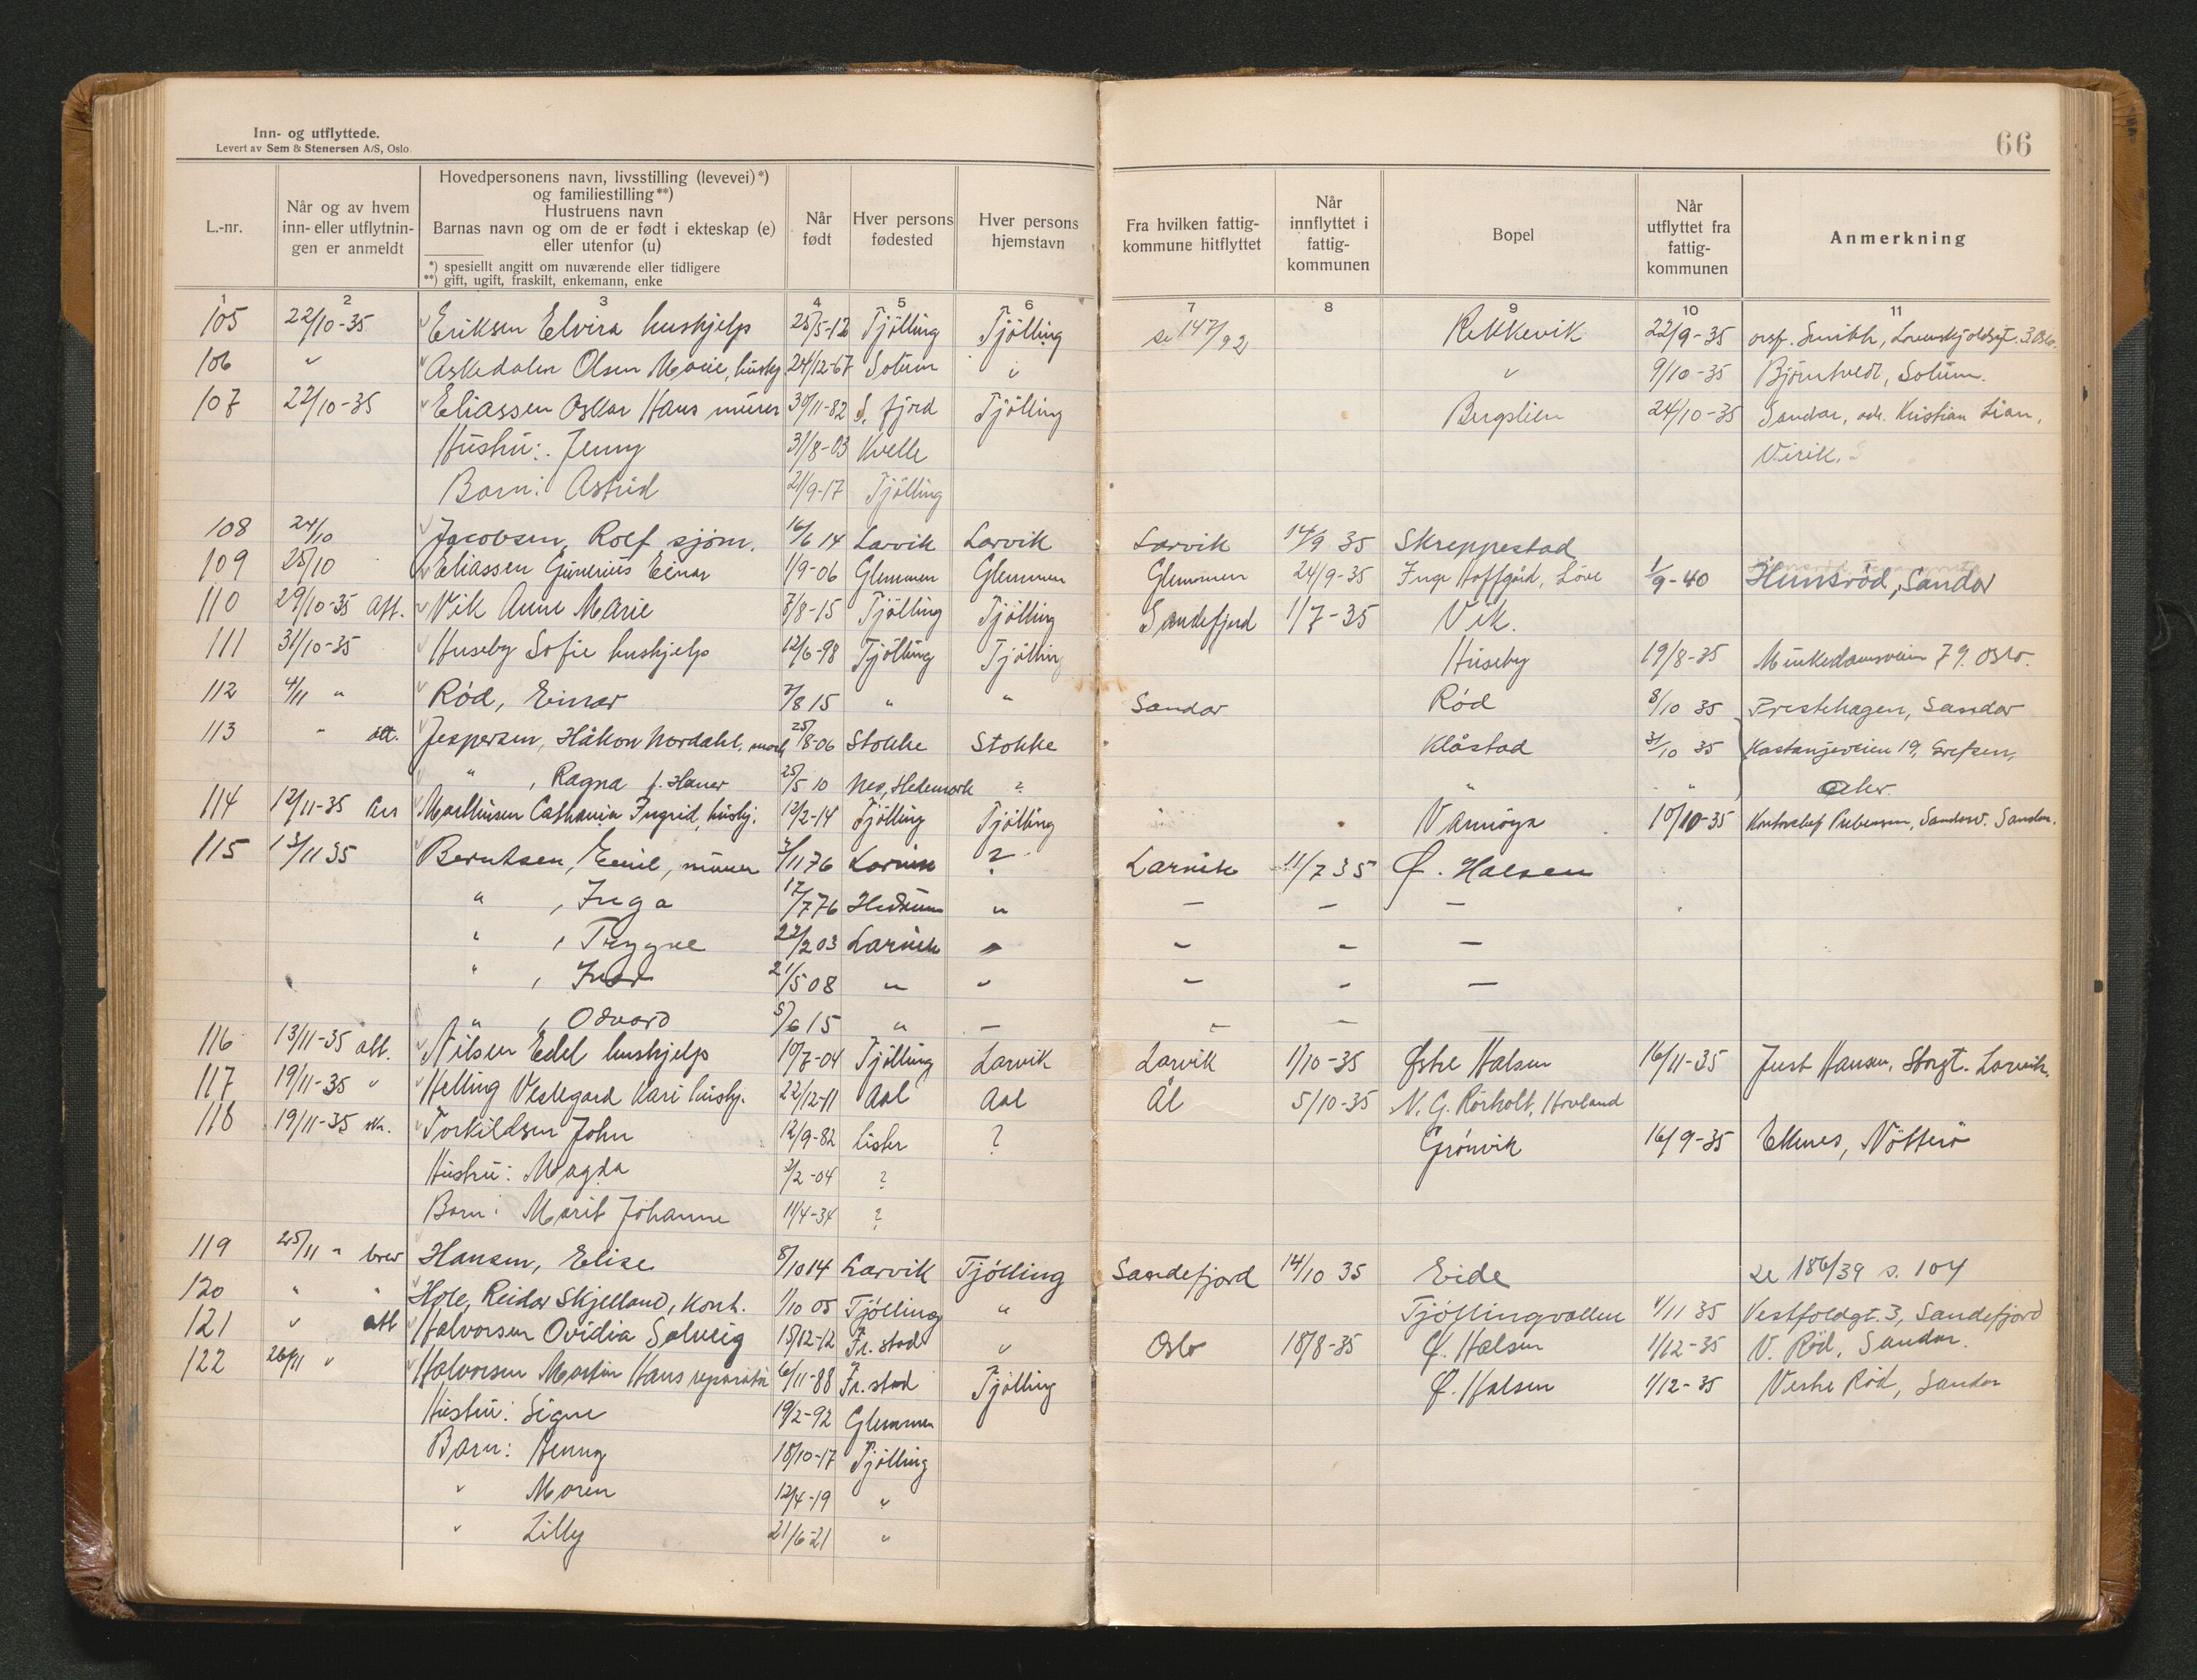 Inn- og utflyttede.
Levert av Sem & Stenersen A/S, Oslo.
66
L.-nr.
Når og av hvem inn- eller utflytnin- gen er anmeldt
Hovedpersonens navn, livsstilling (levevei)*)
og familiestilling**)
Hustruens navn
Barnas navn og om de er født i ekteskap (e)
eller utenfor (u)
*) spesiellt angitt om nuværende eller tidligere
**) gift, ugift, fraskilt, enkemann, enke
Når født
Hver persons fødested
Hver persons hjemstavn
Fra hvilken fattig- kommune hitflyttet
Når innflyttet i fattig- kommunen
Bopel
Når utflyttet fra fattig- kommunen
Anmerkning
1 2 3 4 5 6 7 8 9 10 11
105 22/10-35 Eriksen Elvira hushjelp 25/5-12 Tjölling Tjölling se 147/92 Rekkevik 22/9-35 Smith, 3 Oslo.
106 " Askedalen Olsen Marie, hushj. 24/12-67 Solum " " 9/10-35 Björntvedt, Solum.
107 22/10-35 Eliassen Oskar Hans murer 30/11-82 S. fjord Tjölling Bergslien 24/10-35 Sandar, adr. Kristian Lian,
Hustru: Jenny 31/8-03 Kvelle Virik.
Barn: Astrid 21/9-17 Tjölling
108 24/10 Jacobsen, Rolf sjöm. 16/6 14 Larvik Larvik Larvik 14/9 35 Skreppestad
109 25/10 Eliassen Gunerius Einar 1/9-06 Glemmen Glemmen Glemmen 24/9-35 Inge Hoffgård, Löve 1/9-40 Himsröd, Sandar
110 29/10-35 att. Vik Anne Marie 7/8-15 Tjölling Tjölling Sandefjord 1/7-35 Vik.
111 31/10-35 Huseby Sofie hushjelp 12/6-98 Tjölling Tjölling Huseby 19/8-35 Munkedamsveien 79. Oslo.
112 4/11 " Rød, Einar 7/8 15 " " Sandar Rød 8/10 35 Prestehagen, Sandar
113 " att. Jespersen, Håkon Nordahl, 25/8-06 Stokke Stokke Klåstad 31/10 35 Kastanjeveien 19, Grefsen,
" , Ragna f. Haner 25/5 10 Nes, Hedemark ? " " Aker.
114 12/11-35 Marthinsen Cathania Ingrid, hushj. 12/2-14 Tjölling Tjölling Vannöya 10/10-35 Kontorchef Sandar.
115 13/11 35 Berntsen, Emil, murer 3/11 76 Larvik ? Larvik 11/7 35 Ø. Halsen
" , Inga 17/7 76 Hedrum " – – –
" , Trygve 22/2 03 Larvik " – – –
" , Ivar 21/5 08 " " – – –
" , Odvard 5/6 15 " – – – –
116 13/11-35 att. Nilsen Edel hushjelp 10/7-04 Tjölling Larvik Larvik 1/10-35 Østre Halsen 16/11-35 Just Hansen, Storgt. Larvik.
117 19/11-35 " Helling Vestegard Kari hushj. 22/12-11 Aal Aal Ål 5/10-35 N. G. Rörholt, Hovland
118 19/11-35 Torkildsen John 12/9-82 Lister ? Grönvik 16/9-35 Ekenes, Nötterö
Hustru: Magda 3/2-04 ?
Barn: Marit Johanne 11/4-34 ?
119 25/11 " brev Hansen, Elise 8/10 14 Larvik Tjölling Sandefjord 14/10 35 Eide se 186/39 s. 104
120 " " Hole, Reidar Skjelland, kont. 1/10 05 Tjölling " Tjöllingvollen 1/11 35 Vestfoldgt. 3, Sandefjord
121 " att Halvorsen Ovidia Solveig 15/12-12 Fr. stad " Oslo 18/8-35 Ø. Halsen 1/12-35 V. Röd, Sandar.
122 26/11 " Halvorsen Martin Hans reparatör 6/11-88 Fr. stad Tjölling Ø. Halsen 1/12-35 Vestre Röd, Sandar
Hustru: Signe 19/2-92 Glemmen
Barn: Jenny 18/10-17 Tjölling
" Maren 12/4-19 "
" Lilly 21/6-21 "